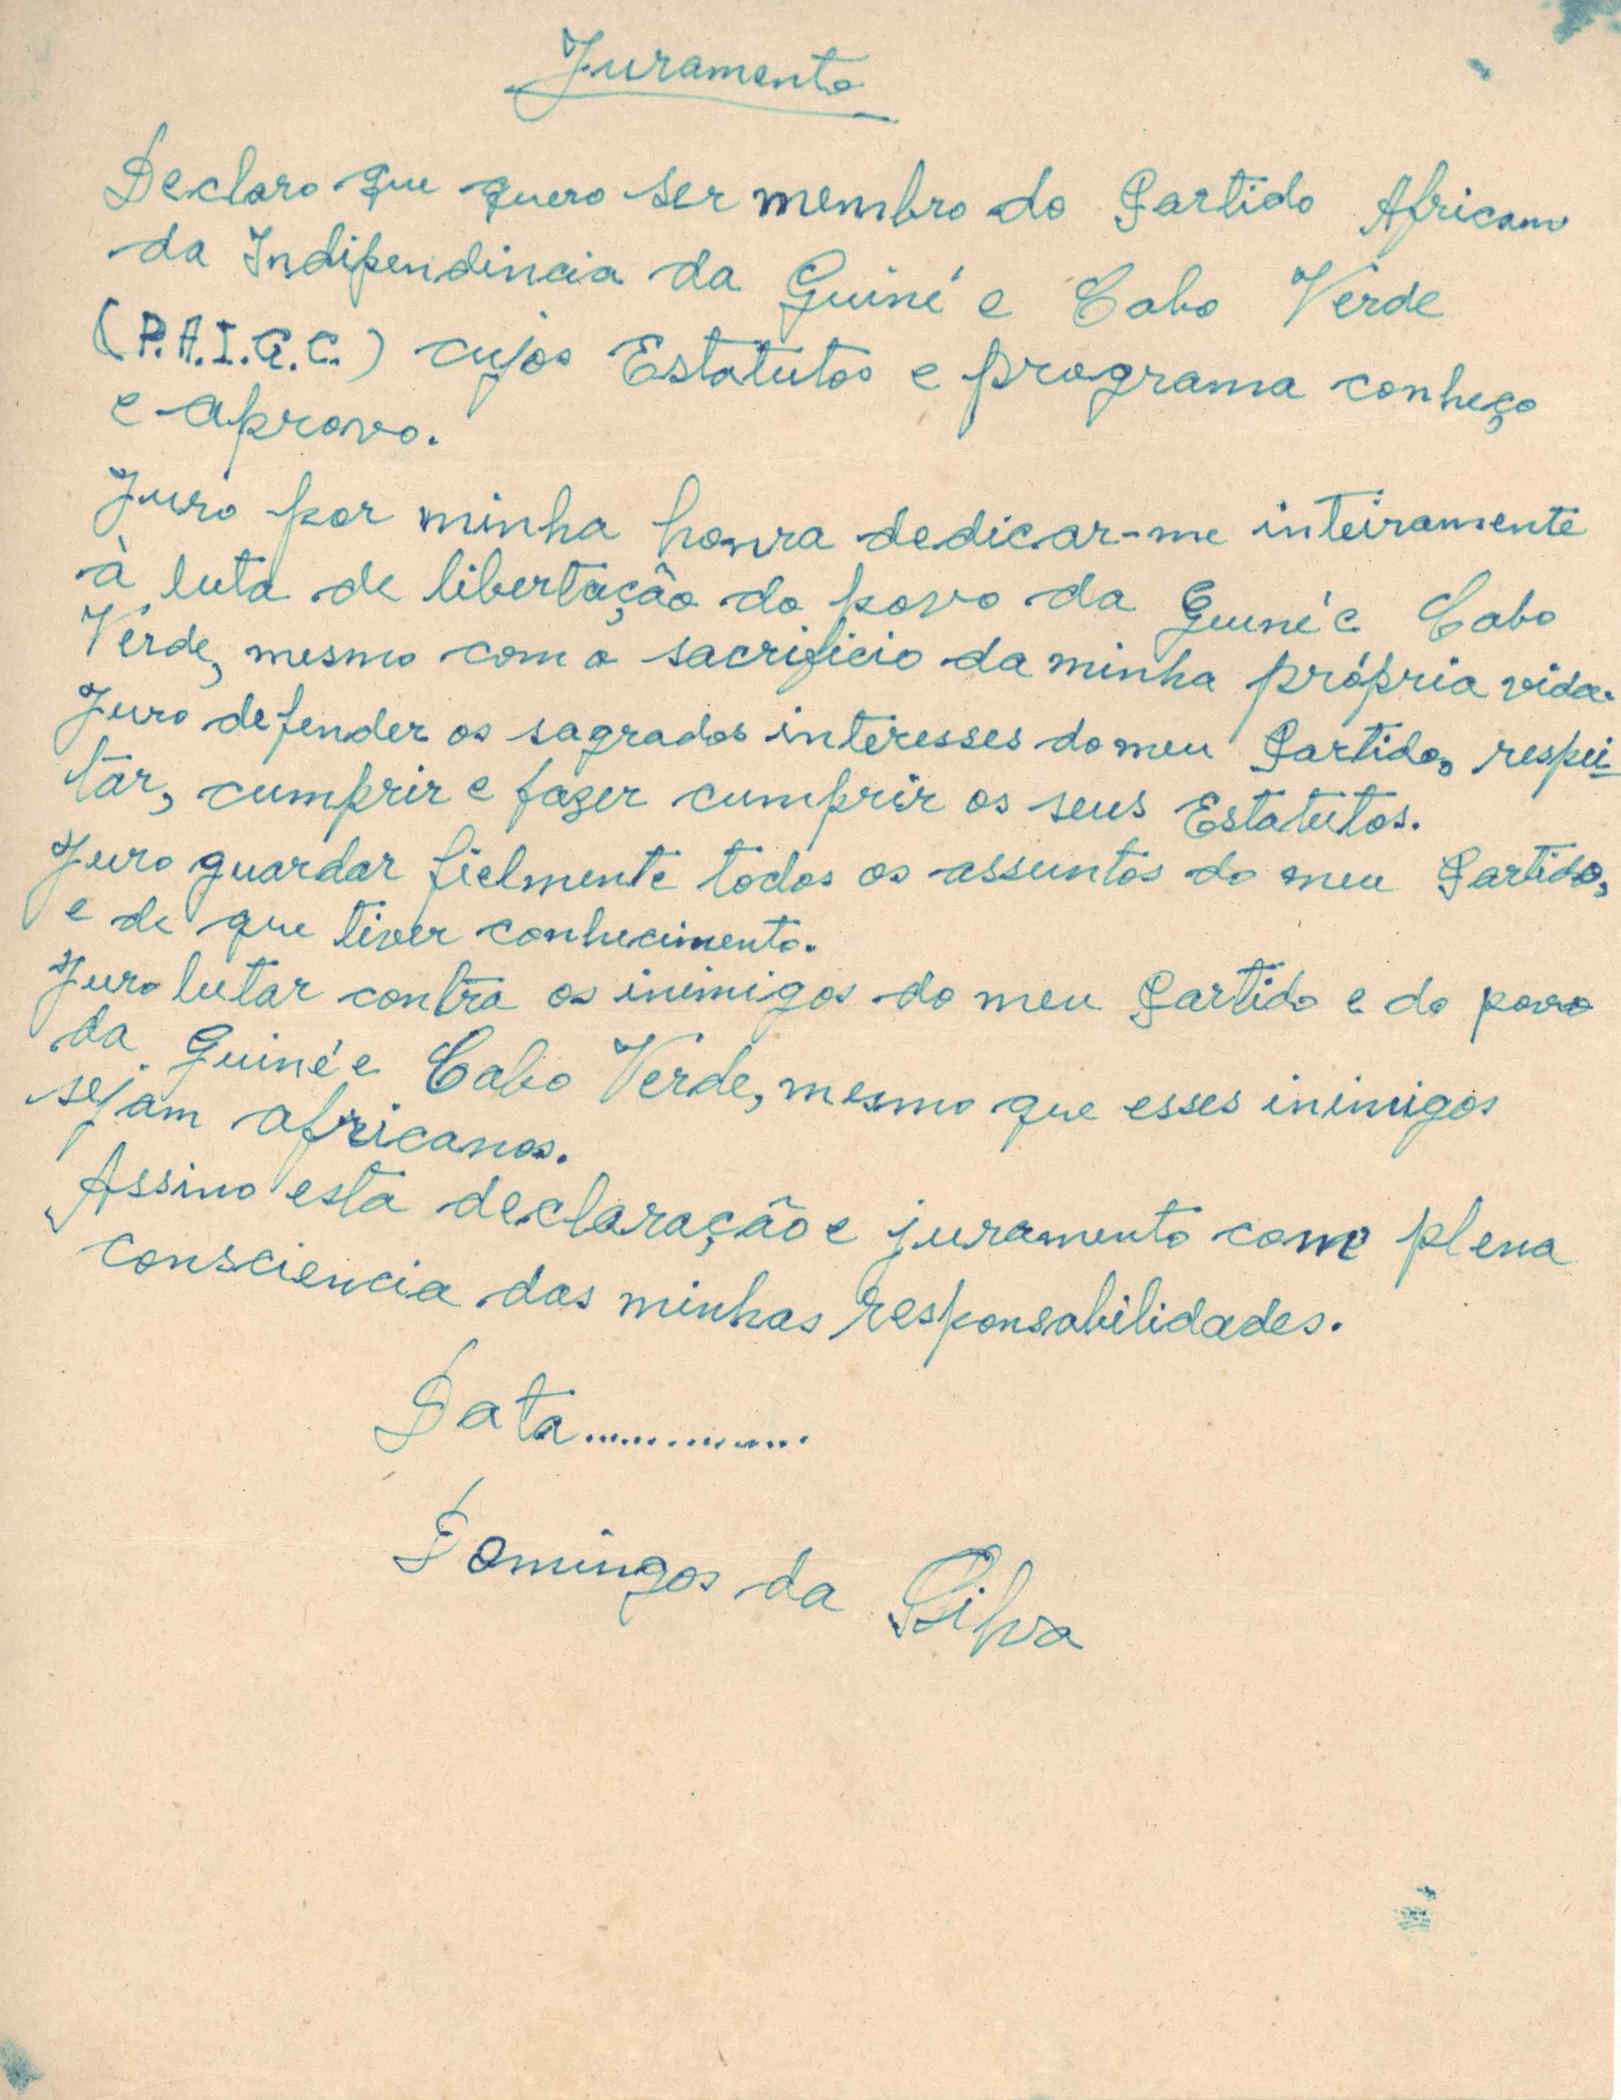 Juramento
Declaro que quero ser membro do Partido Africano
da Indipendincia da Guiné e Cabo Verde
(P.A.I.G.C.) cujos Estatutos e programa conheço
e aprovo.
Juro por minha honra dedicar-me inteiramente
à luta de libertação do povo da Guiné e Cabo
Verde, mesmo com o sacrificio da minha própria vida.
Juro defender os sagrados interesses do meu Partido, respei-
tar, cumprir e fazer cumprir os seus Estatutos.
Juro guardar fielmente todos os assuntos do meu Partido,
e de que tiver conhecimento.
Juro lutar contra os inimigos do meu Partido e do povo
da Guiné e Cabo Verde, mesmo que esses inimigos
sejam africanos.
Assino esta declaração e juramento com plena
consciencia das minhas responsabilidades.
Data..............
Domingos da Silva